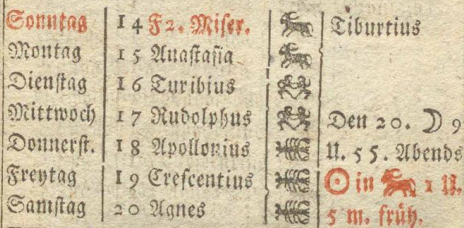 Sonntag 14 F2. Miser. Tiburtius
Montag 15 Anastasia
Dienstag 16 Turibius
Mittwoch 17 Rudolphus Den 20. ☽ 9
Donnerst. 18 Apollonius U. 55. Abends
Freytag 19 Crescentius ☉ in 1 U.
Samstag 20 Agnes 5 m. früh.